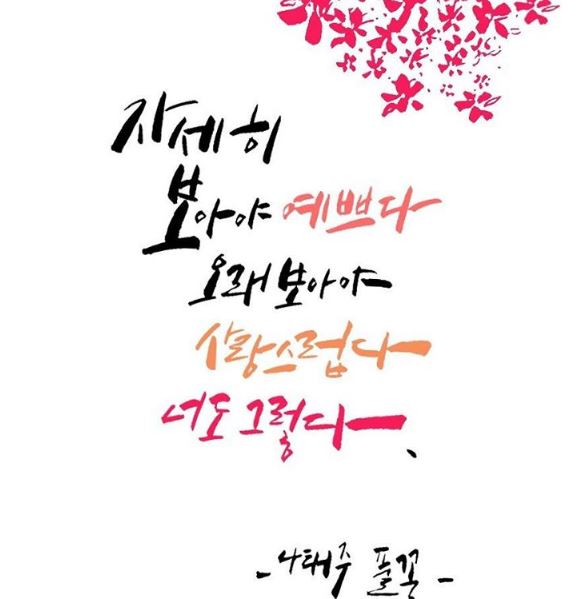 자세히
보아야 예쁘다
오래 보아야
사랑스럽다
너도 그렇다.
-나태주 풀꽃-